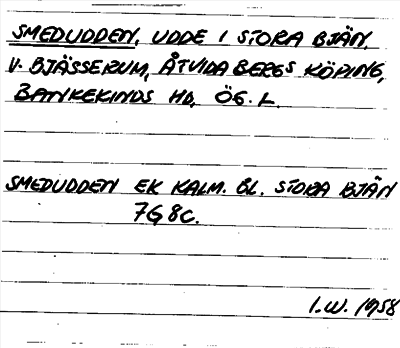 SMEDUDDEN, UDDE I STORA BJÄN,
V. BJÄSSERUM, ÅTVIDABERGS KÖPING,
BANKEKINDS HD, ÖG. L.
SMEDUDDEN EK KALM. BL. STORA BJÄN
7G 8C.
I.W. 1958